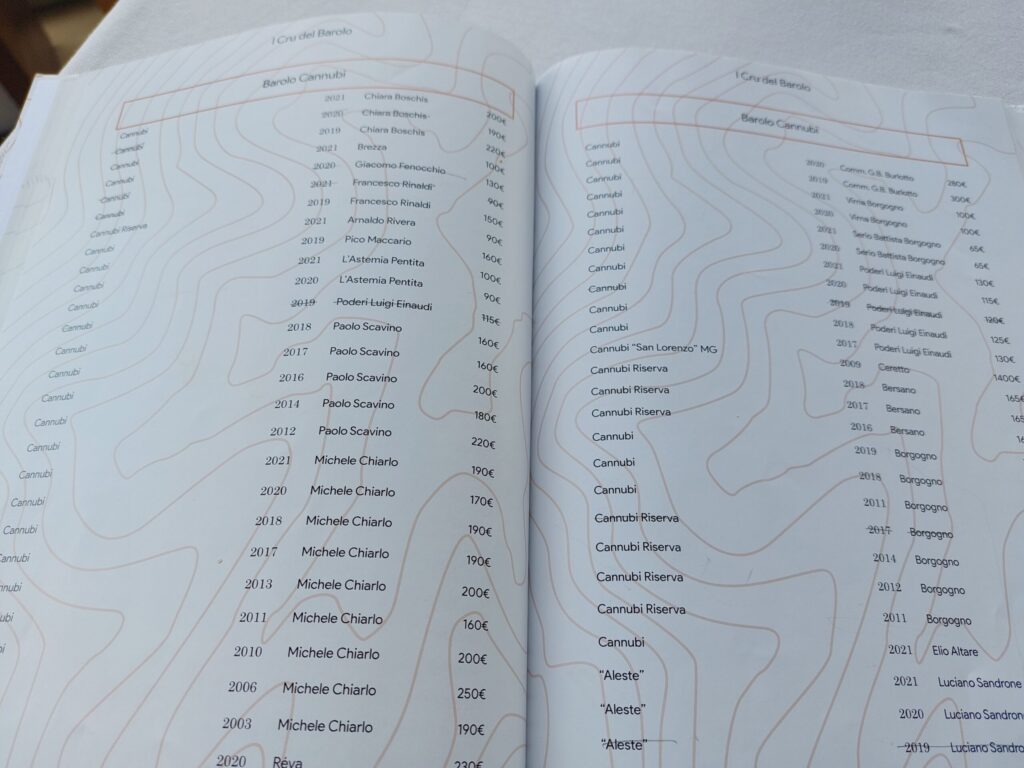 I Cru del Barolo
Barolo Cannubi
Cannubi 2021 Chiara Boschis 200€
Cannubi 2020 Chiara Boschis 190€
Cannubi 2019 Chiara Boschis 220€
Cannubi 2021 Brezza 100€
Cannubi 2020 Giacomo Fenocchio 130€
Cannubi 2021 Francesco Rinaldi 90€
Cannubi Riserva 2019 Francesco Rinaldi 150€
Cannubi 2021 Arnaldo Rivera 90€
Cannubi 2019 Pico Maccario 160€
Cannubi 2021 L'Astemia Pentita 100€
Cannubi 2020 L'Astemia Pentita 90€
Cannubi 2019 Poderi Luigi Einaudi 115€
Cannubi 2018 Paolo Scavino 160€
Cannubi 2017 Paolo Scavino 160€
Cannubi 2016 Paolo Scavino 200€
Cannubi 2014 Paolo Scavino 180€
Cannubi 2012 Paolo Scavino 220€
Cannubi 2021 Michele Chiarlo 190€
Cannubi 2020 Michele Chiarlo 170€
Cannubi 2018 Michele Chiarlo 190€
Cannubi 2017 Michele Chiarlo 190€
nnubi 2013 Michele Chiarlo 200€
ubi 2011 Michele Chiarlo 160€
bi 2010 Michele Chiarlo 200€
2006 Michele Chiarlo 250€
2003 Michele Chiarlo 190€
2020 Réva 230€
I Cru del Barolo
Barolo Cannubi
Cannubi 2020 Comm. G.B. Burlotto 280€
Cannubi 2019 Comm. G.B. Burlotto 300€
Cannubi 2021 Virna Borgogno 100€
Cannubi 2020 Virna Borgogno 100€
Cannubi 2021 Serio Battista Borgogno 65€
Cannubi 2020 Serio Battista Borgogno 65€
Cannubi 2021 Poderi Luigi Einaudi 130€
Cannubi 2020 Poderi Luigi Einaudi 115€
Cannubi 2019 Poderi Luigi Einaudi 120€
Cannubi 2018 Poderi Luigi Einaudi 125€
Cannubi 2017 Poderi Luigi Einaudi 130€
Cannubi "San Lorenzo" MG 2009 Ceretto 1400€
Cannubi Riserva 2018 Bersano 165€
Cannubi Riserva 2017 Bersano 165
Cannubi Riserva 2016 Bersano 16
Cannubi 2019 Borgogno
Cannubi 2018 Borgogno
Cannubi 2011 Borgogno
Cannubi Riserva 2017 Borgogno
Cannubi Riserva 2014 Borgogno
Cannubi Riserva 2012 Borgogno
Cannubi Riserva 2011 Borgogno
Cannubi 2021 Elio Altare
"Aleste" 2021 Luciano Sandrone
"Aleste" 2020 Luciano Sandron
"Aleste" 2019 Luciano Sandro